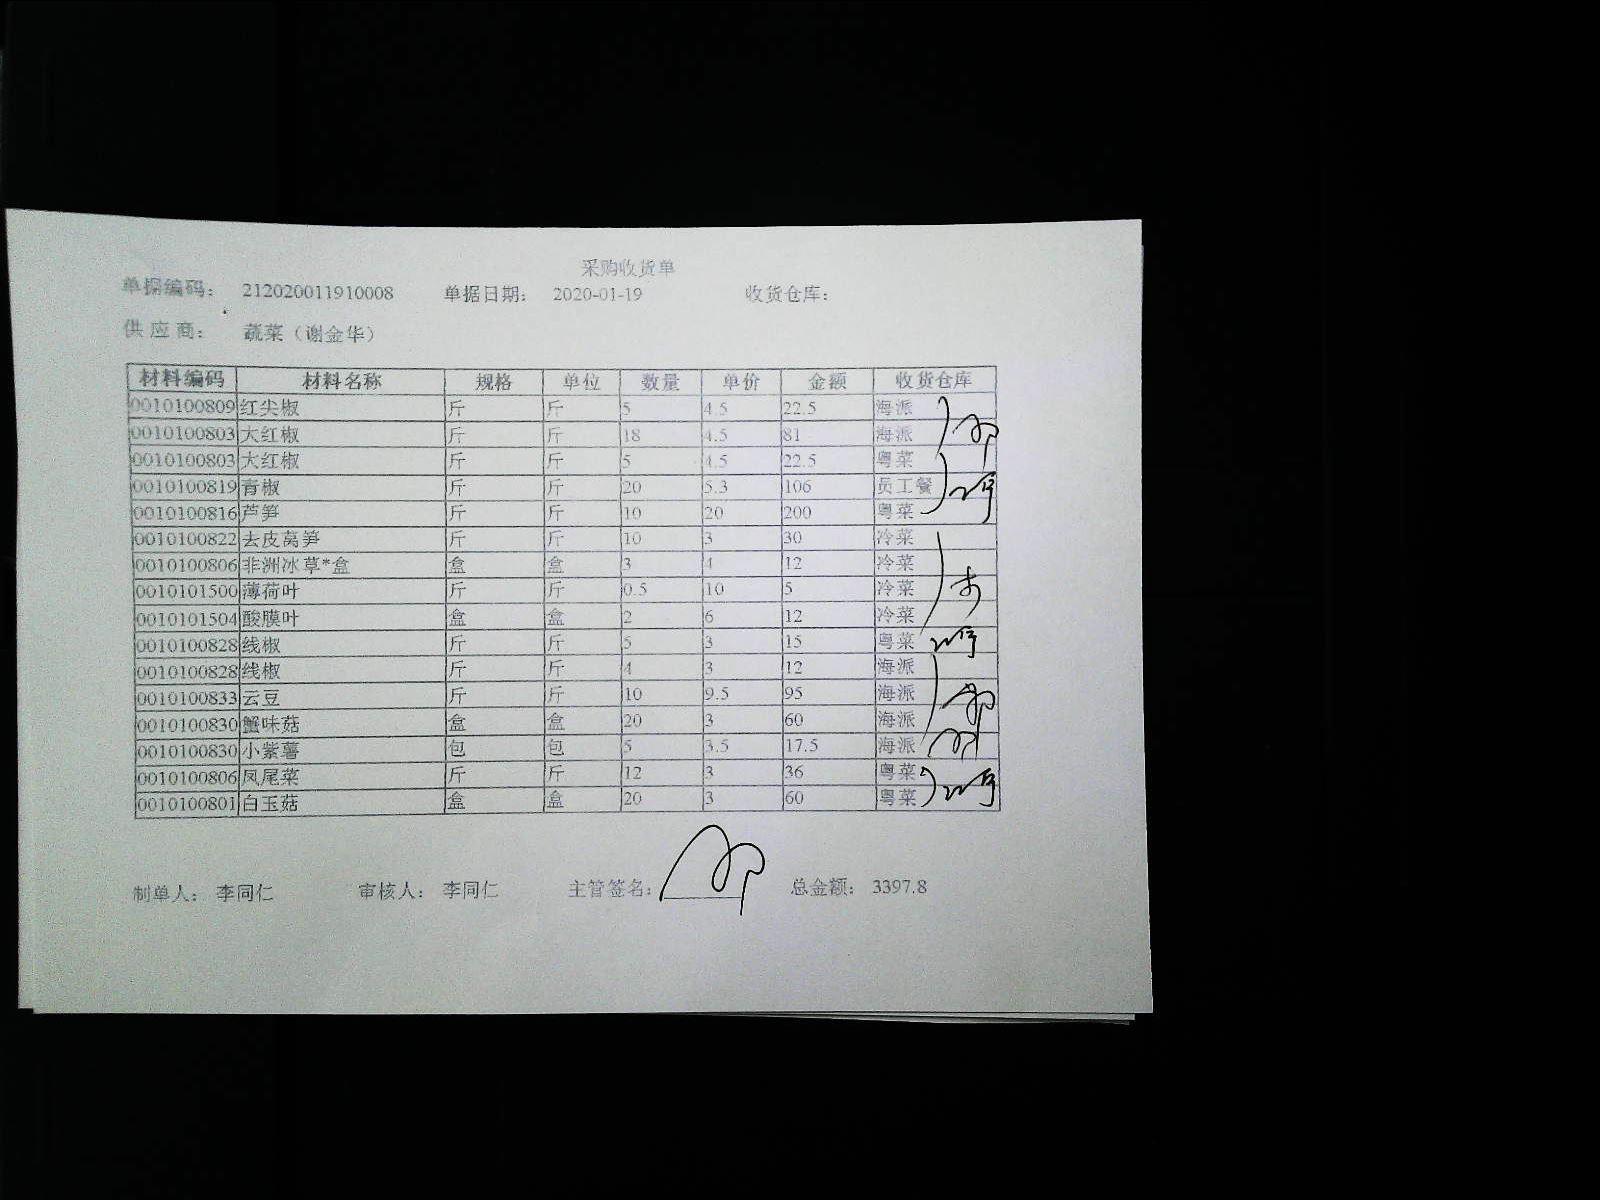 采购收货单
单据编码： 212020011910008 单据日期： 2020-01-19 收货仓库：
供应商： 蔬菜（谢金华）
材料编码 材料名称 规格 单位 数量 单价 金额 收货仓库
0010100809 红尖椒 斤 斤 5 4.5 22.5 海派
0010100803 大红椒 斤 斤 18 4.5 81 海派
0010100803 大红椒 斤 斤 5 4.5 22.5 粤菜
0010100819 青椒 斤 斤 20 5.3 106 员工餐
0010100816 芦笋 斤 斤 10 20 200 粤菜
0010100822 去皮莴笋 斤 斤 10 3 30 冷菜
0010100806 非洲冰草*盒 盒 盒 3 4 12 冷菜
0010101500 薄荷叶 斤 斤 0.5 10 5 冷菜
0010101504 酸膜叶 盒 盒 2 6 12 冷菜
0010100828 线椒 斤 斤 5 3 15 粤菜
0010100828 线椒 斤 斤 4 3 12 海派
0010100833 云豆 斤 斤 10 9.5 95 海派
0010100830 蟹味菇 盒 盒 20 3 60 海派
0010100830 小紫薯 包 包 5 3.5 17.5 海派
0010100806 凤尾菜 斤 斤 12 3 36 粤菜
0010100801 白玉菇 盒 盒 20 3 60 粤菜
制单人： 李同仁 审核人： 李同仁 主管签名： 总金额： 3397.8